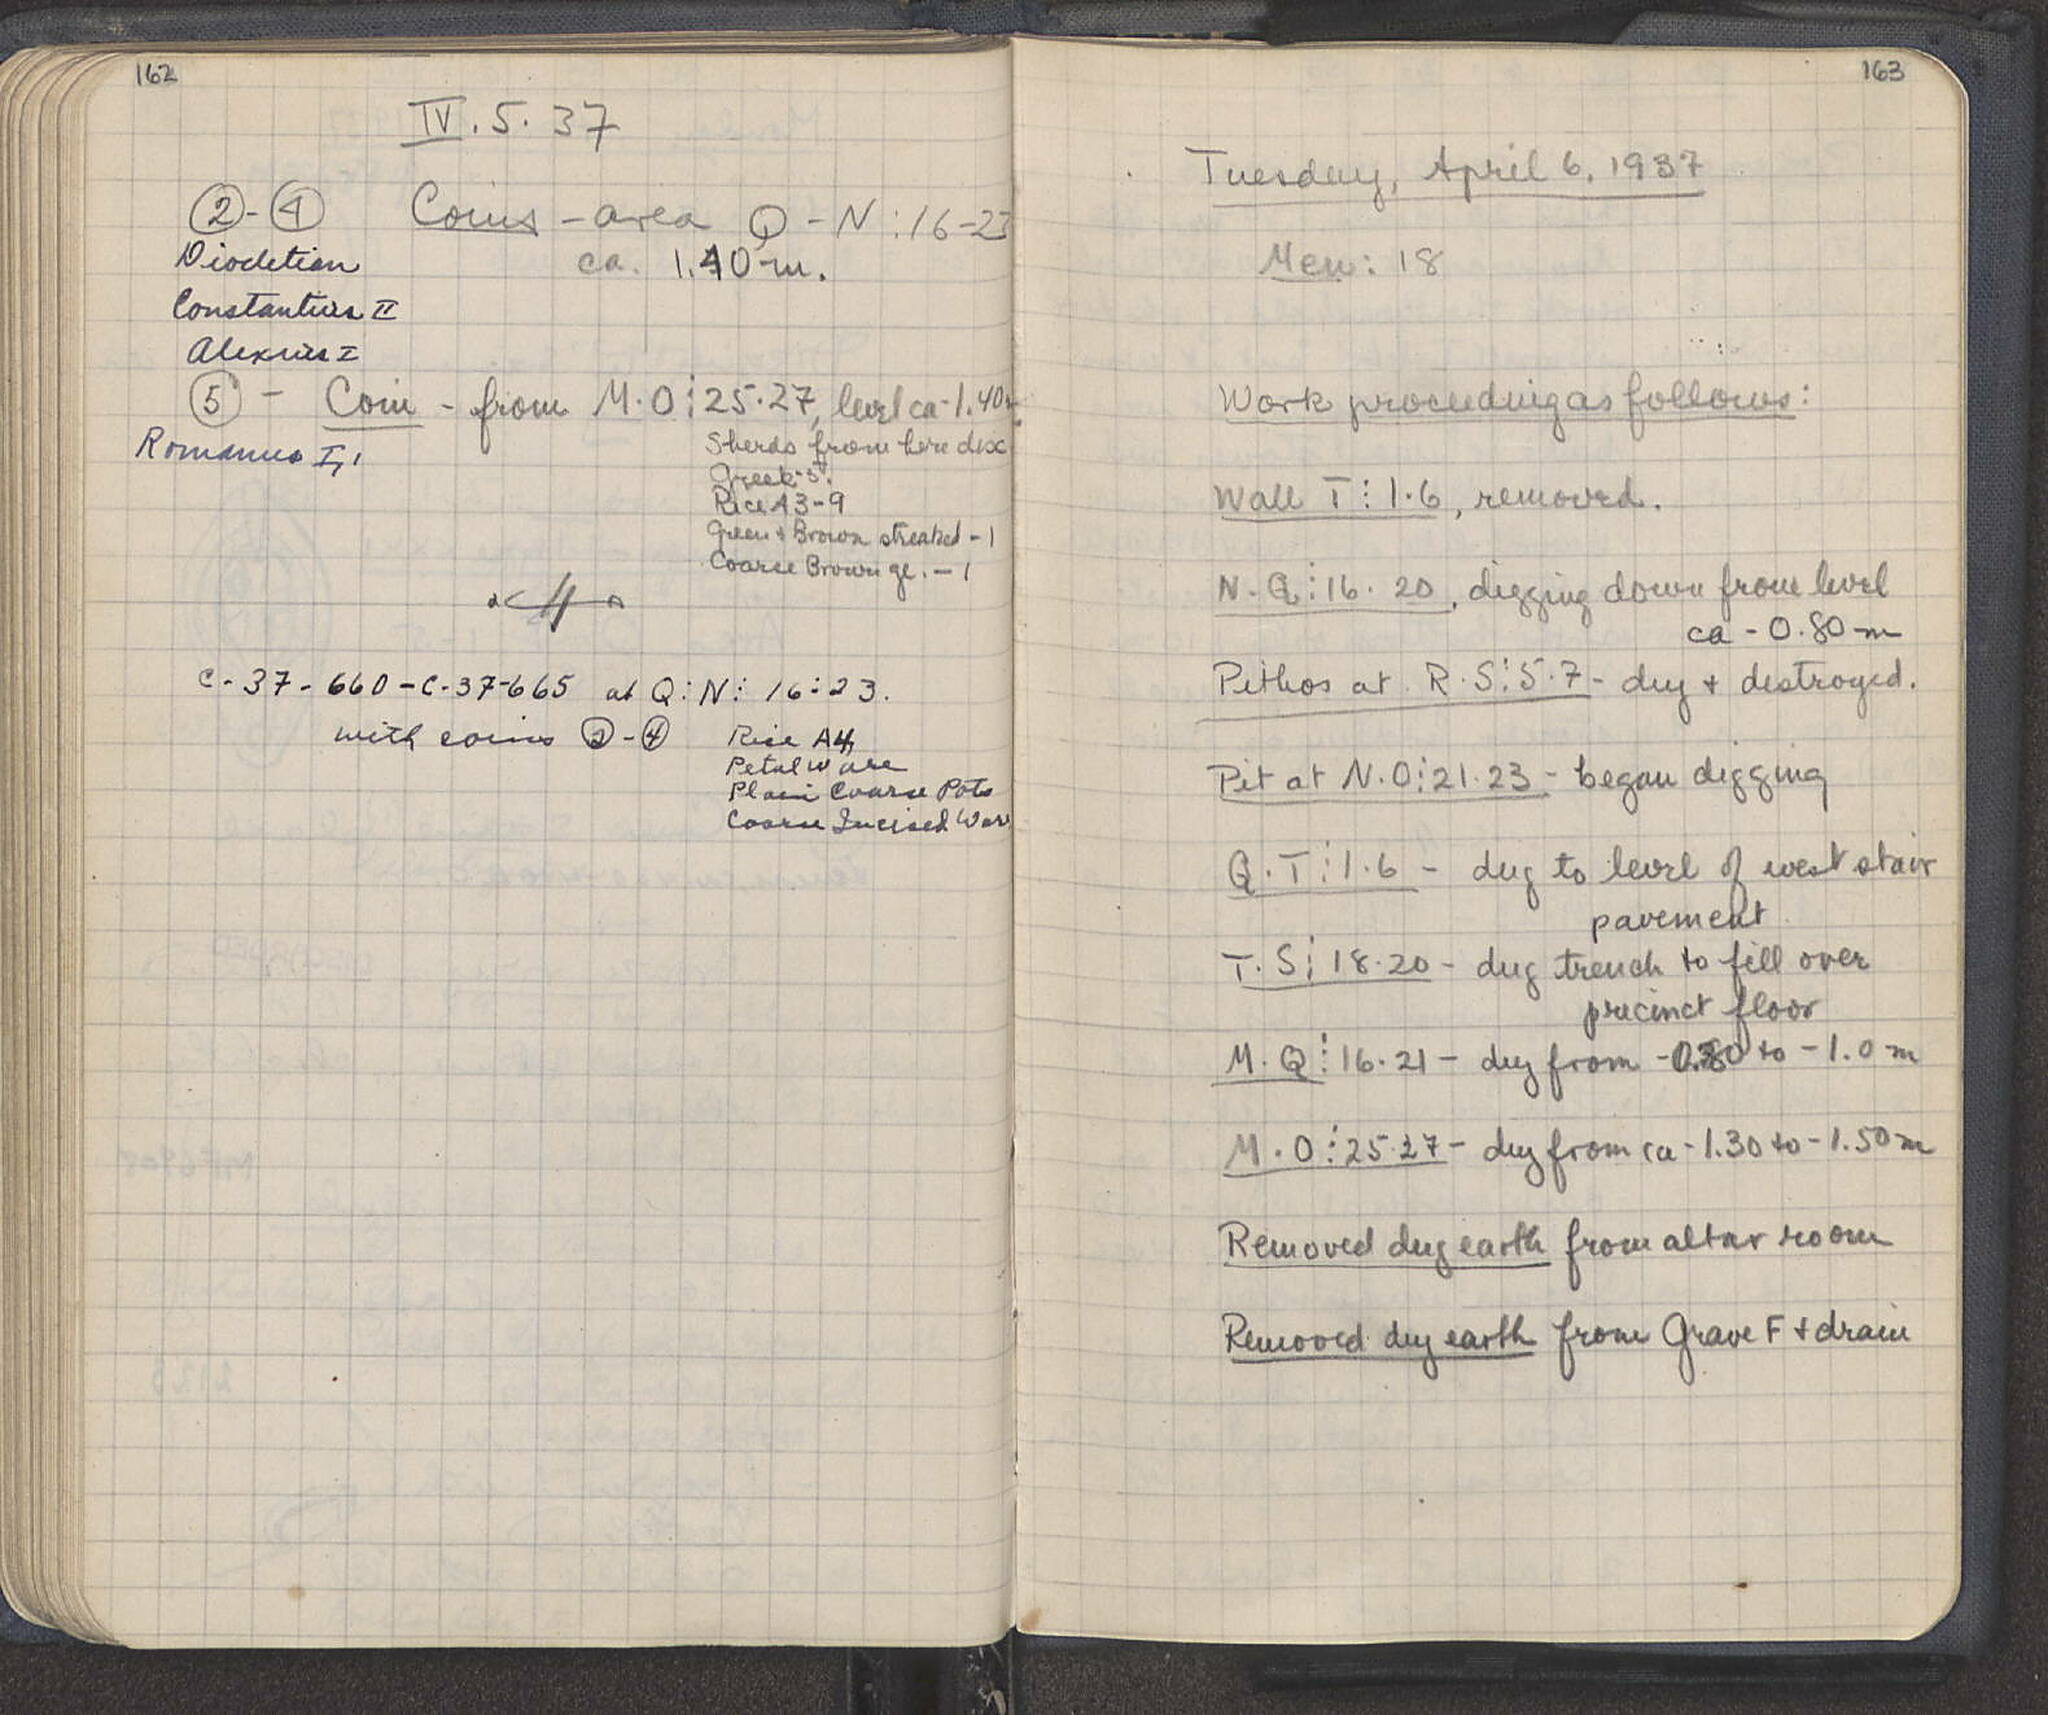 162
IV. 5. 37
②-④ Coins - area Q - N : 16-23
Diocletian ca. 1.40 m.
Constantius II
Alexius I
⑤ - Coin - from M.O⋮25.27, level ca - 1.40
Romanus I,
Sherds from here disc
Greek-5.
Rice A3-9
Green & Brown streaked - 1
Coarse Brown gl. - 1
C-37-660-C-37-665 at Q:N: 16:23.
with coins ②-④ Rice A4
Petal Ware
Plain Coarse Pots
Coarse Incised War
163
Tuesday, April 6, 1937
Men: 18
Work proceeding as follows:
Wall T⋮1.6, removed.
N.Q⋮16. 20, digging down from level
ca - 0.80 m
Pithos at R.S⋮5.7 - dug & destroyed.
Pit at N.O⋮21.23 - began digging
Q.T⋮1.6 - dug to level of west stair
pavement
T.S⋮18.20 - dug trench to fill over
precinct floor
M.Q⋮16.21 - dug from -0.80 to - 1.0 m
M.O⋮25.27 - dug from ca - 1.30 to - 1.50 m
Removed dug earth from altar room
Removed dug earth from Grave F & drain